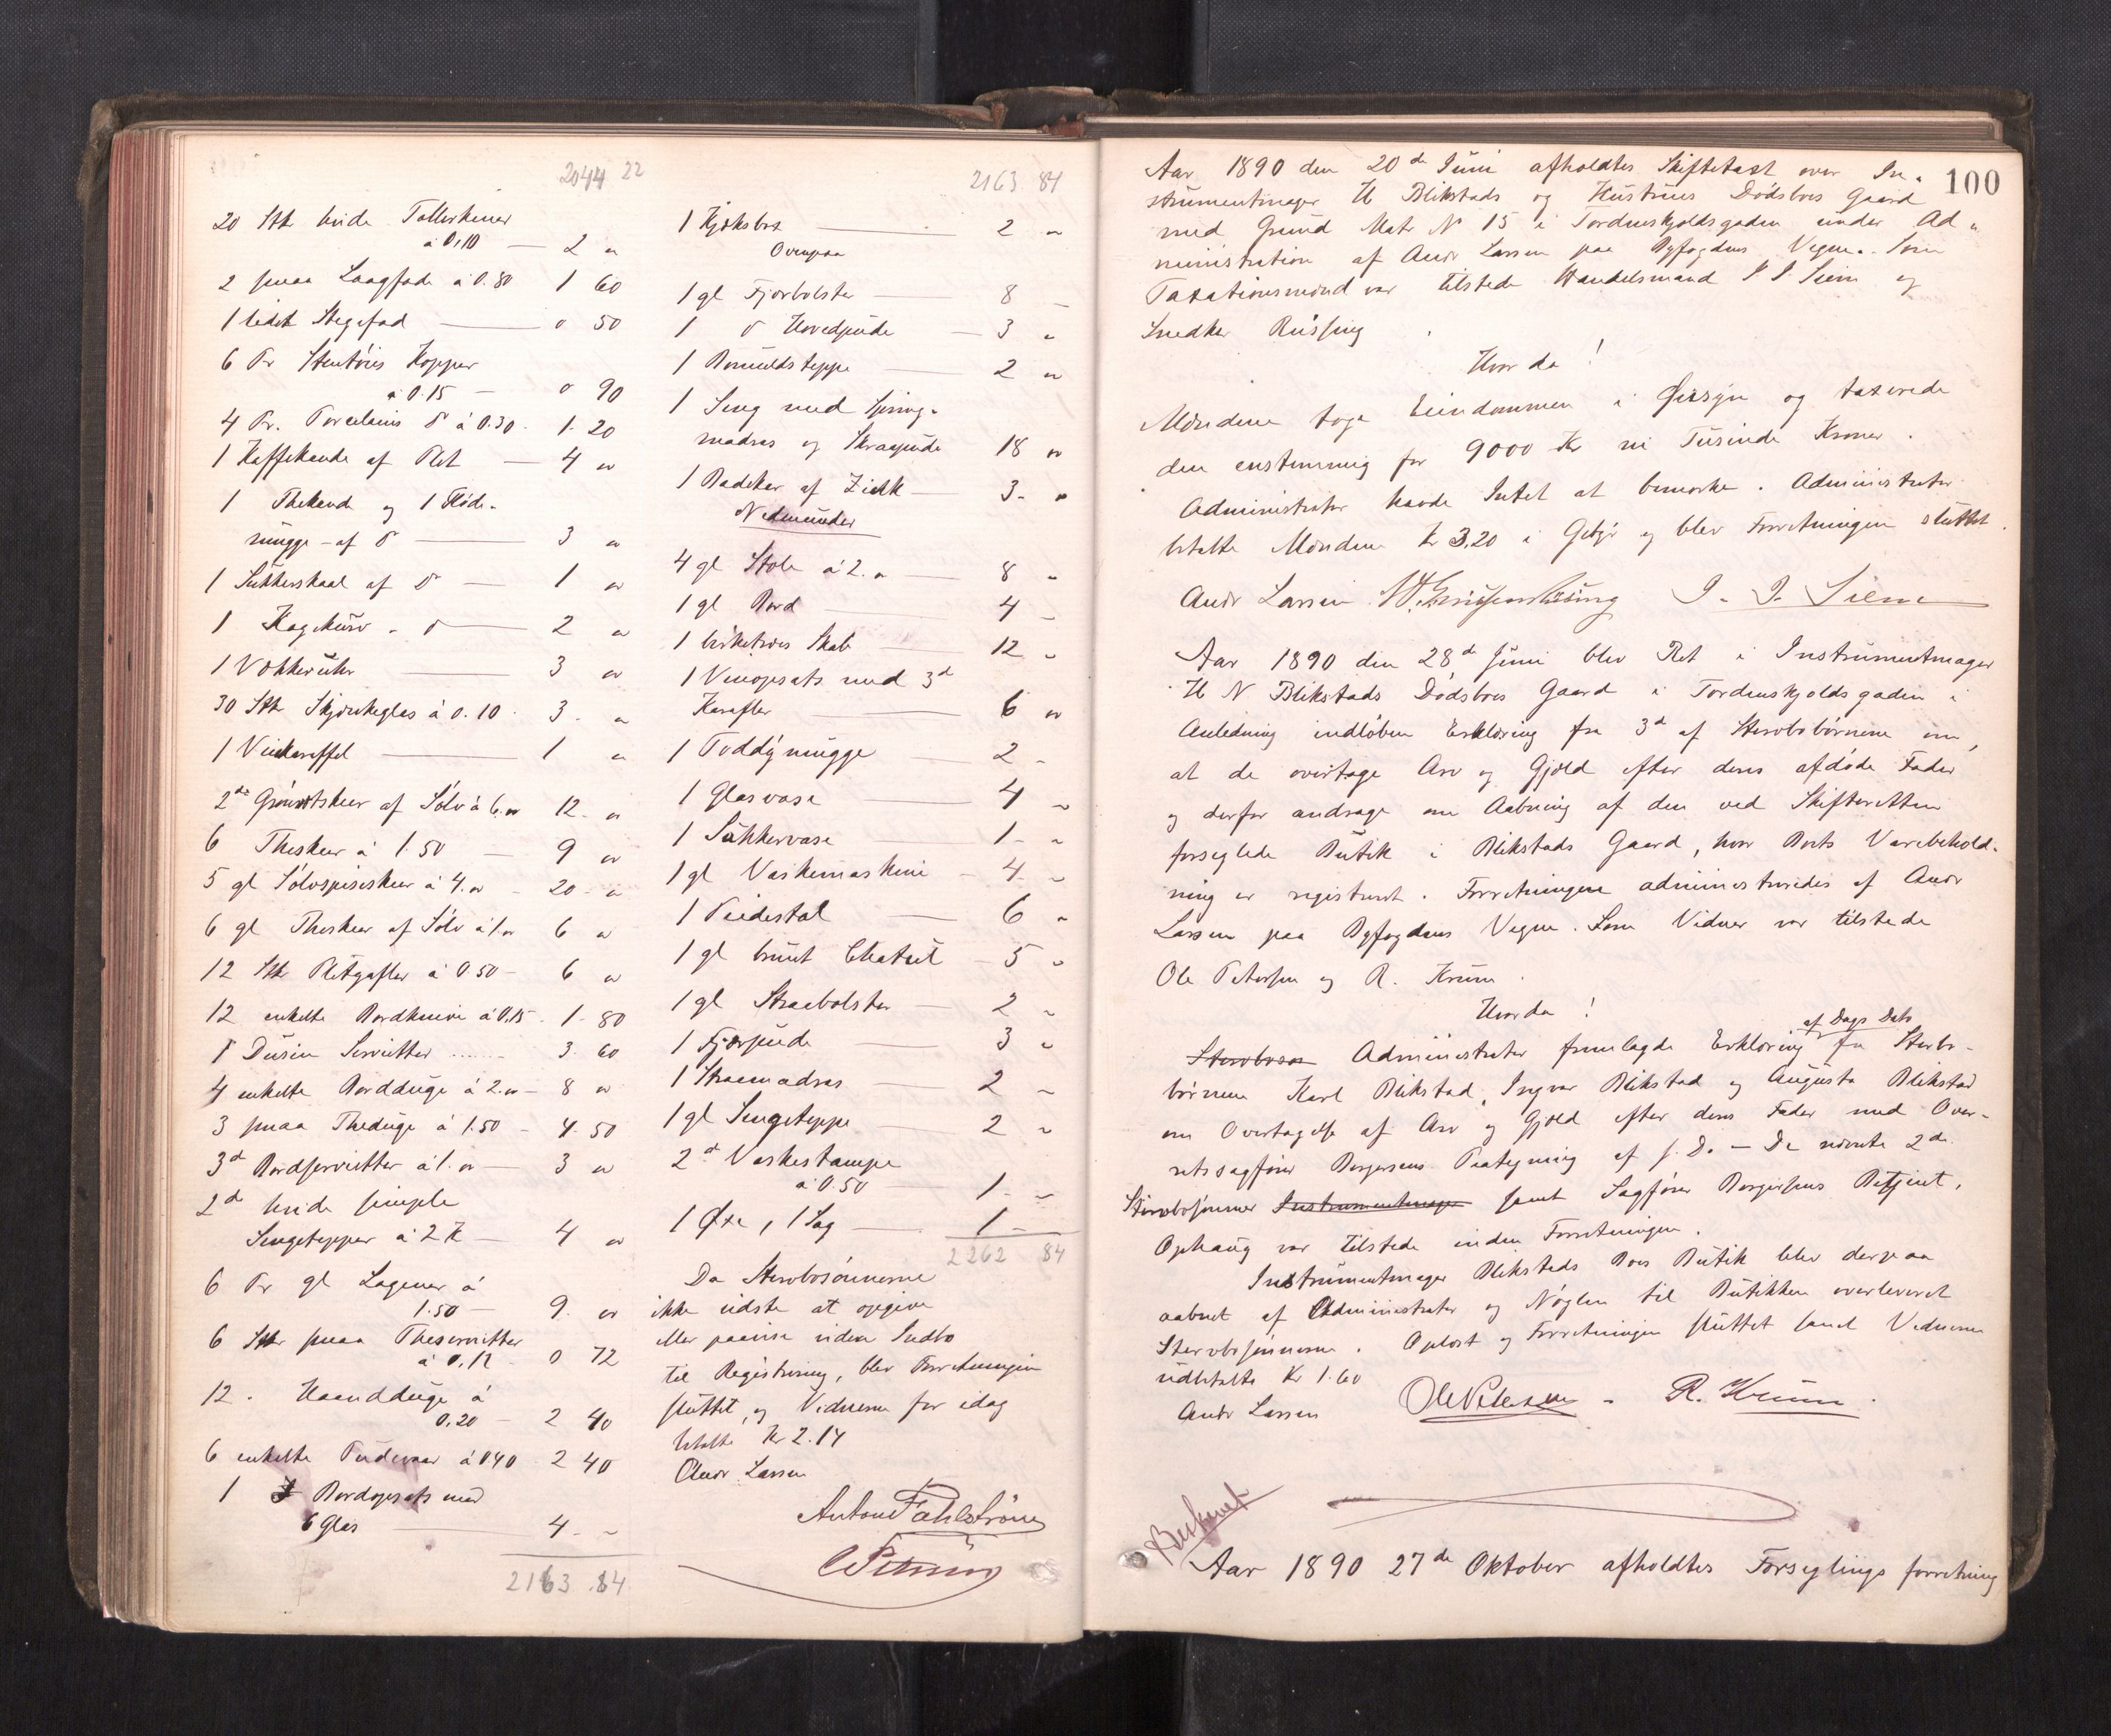 2044 22
20 Stk hvide Tallerkener
à 0,10 — 2 "
2 smaa Laagfade à 0.80 1 60
1 lidet Stegefad — 0 50
6 Pr Stentöies Kopper
à 0.15 — 0 90
4 Pr. Porcelains do à 0.30 - 1. 20
1 Kaffekande af Plet — 4 "
1 Thekande og 1 Fløde-
mugge - af do — 3 "
1 Sukkerskaal af do — 1 "
1 Kagekurv - do — 2 "
1 Vækkeruhr — 3 "
30 Stk Skjænkeglas à 0.10 - 3. "
1 Vinkaraffel — 1 "
2de Grøndtskeer af Sölv à 6. " 12. "
6 Theskeer à 1.50 — 9 "
5 gl Sölvspiseskeer à 4. " - 20 - "
6 gl Theskeer af Sölv à 1. " 6 "
12 Stk Pletgafler à 0.50 - 6 "
12 enkelte Bordknive à 0,15 - 1. 80
1 Dusin Servietter ...... 3. 60
4 enkelte Bordduge à 2. " - 8 "
3 smaa Theduge à 1.50 - 4. 50
3d Bordservietter à 1. " — 3 "
2d hvide simple
Sengetepper à 2 K — 4 "
6 Pr gl Lagener à
1.50 — 9. "
6 Stk smaa Theservietter
à 0,12 - 0 72
12. Haandduge à
0,20 - 2 40
6 enkelte Pudevaar à 0.40 2 40
1 Bordopsats med
6 Glas — 4 - "
2163.84
2163 84
1 Kjøksbox — 2 "
Ovenpaa
1 gl Fjærbolster — 8 "
1 do Hovedpude — 3 "
1 Bomuldsteppe — 2 "
1 Seng med Spring-
madras og Skraapude 18 "
1 Badekar af Zink — 3 - "
Nedenunder
4 gl Stole à 2. " — 8 "
1 gl Bord — 4 "
1 birketræs Skab — 12 "
1 Vinopsats med 3d
Karafler — 6 "
1 Toddymugge — 2 "
1 Glasvase — 4 "
1 Sukkervase — 1 - "
1 gl Vaskemaskine - 4 "
1 Pidestal — 6 "
1 gl brunt Chatul - 5 "
1 gl Straabolster — 2 "
1 Fjærpude — 3 "
1 Straamadras — 2 "
1 gl Sengeteppe — 2 "
2d Vaskestampe
à 0.50 — 1. "
1 Øxe, 1 Sag — 1 -
2262 84
Da Stervbosönnerne
ikke vidste at opgive
eller paavise videre Indbo
til Registrering, blev Forretningen
sluttet, og Vidnerne for idag
betalte Kr 2.14
Andr Larsen
Anton Fahlström
100
Aar 1890 den 20de Juni afholdtes Skiftetaxt over In-
strumentmager H Blikstads og Hustrues Dödsbos Gaard
med Grund Matr N 15 i Tordenskjoldsgaden under Ad-
ministration af Andr Larsen paa Byfogdens Vegne. Som
Taxationsmænd var tilstede Handelsmand J J Siem og
Snedker Rüssing
Hvorda!
Mændene toge Eiendommen i Øiesyn og taxerede
den enstemmig for 9000 Kr ni Tusinde Kroner.
Administrator havde Intet at bemærke. Administrator
betalte Mændene Kr 3,20 i Gebyr og blev Forretningen sluttet.
Andr Larsen J. J. Siem
Aar 1890 den 28de Juni blev Ret i Instrumentmager
H N Blikstads Dödsbos Gaard i Tordenskjoldsgaden i
Anledning indlöben Erklæring fra 3d af Stervbobörnene om,
at de overtage Arv og Gjæld efter deres afdöde Fader
og derfor andrage om Aabning af den ved Skifteretten
forseglede Butik i Blikstads Gaard, hvor Boets Varebehold-
ning er registreret. Forretningen administreredes af Andr
Larsen paa Byfogdens Vegne. Som Vidner var tilstede
Ole Petersen og R. Krum.
Hvorda!
af Dags Dato
Administrator fremlagde Erklæring fra Stervbo-
börnene Karl Blikstad, Ingvar Blikstad og Augusta Blikstad
om Overtagelse af Arv og Gjæld efter deres Fader med Over-
retssagförer Borgersens Paategning af s. D. — De nævnte 2de
Stervbosönner Instrumentmager samt Sagförer Borgersens Betjent,
Ophaug var tilstede under Forretningen.
Instrumentmager Blikstads Boes Butik blev derpaa
aabnet af Administrator og Nöglen til Butikken overleveret
Stervbosönnerne. Oplæst og Forretningen sluttet samt Vidnerne
udbetalte Kr 1.60
Andr Larsen Ole Petersen - R. Krum.
Beskrevet
Aar 1890 27de Oktober afholdtes Forseglingsforretning